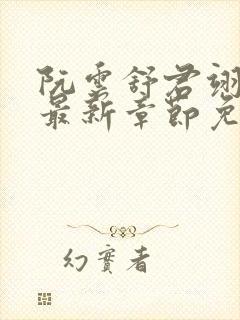 阮云舒君翊
最新章节免
幻实者